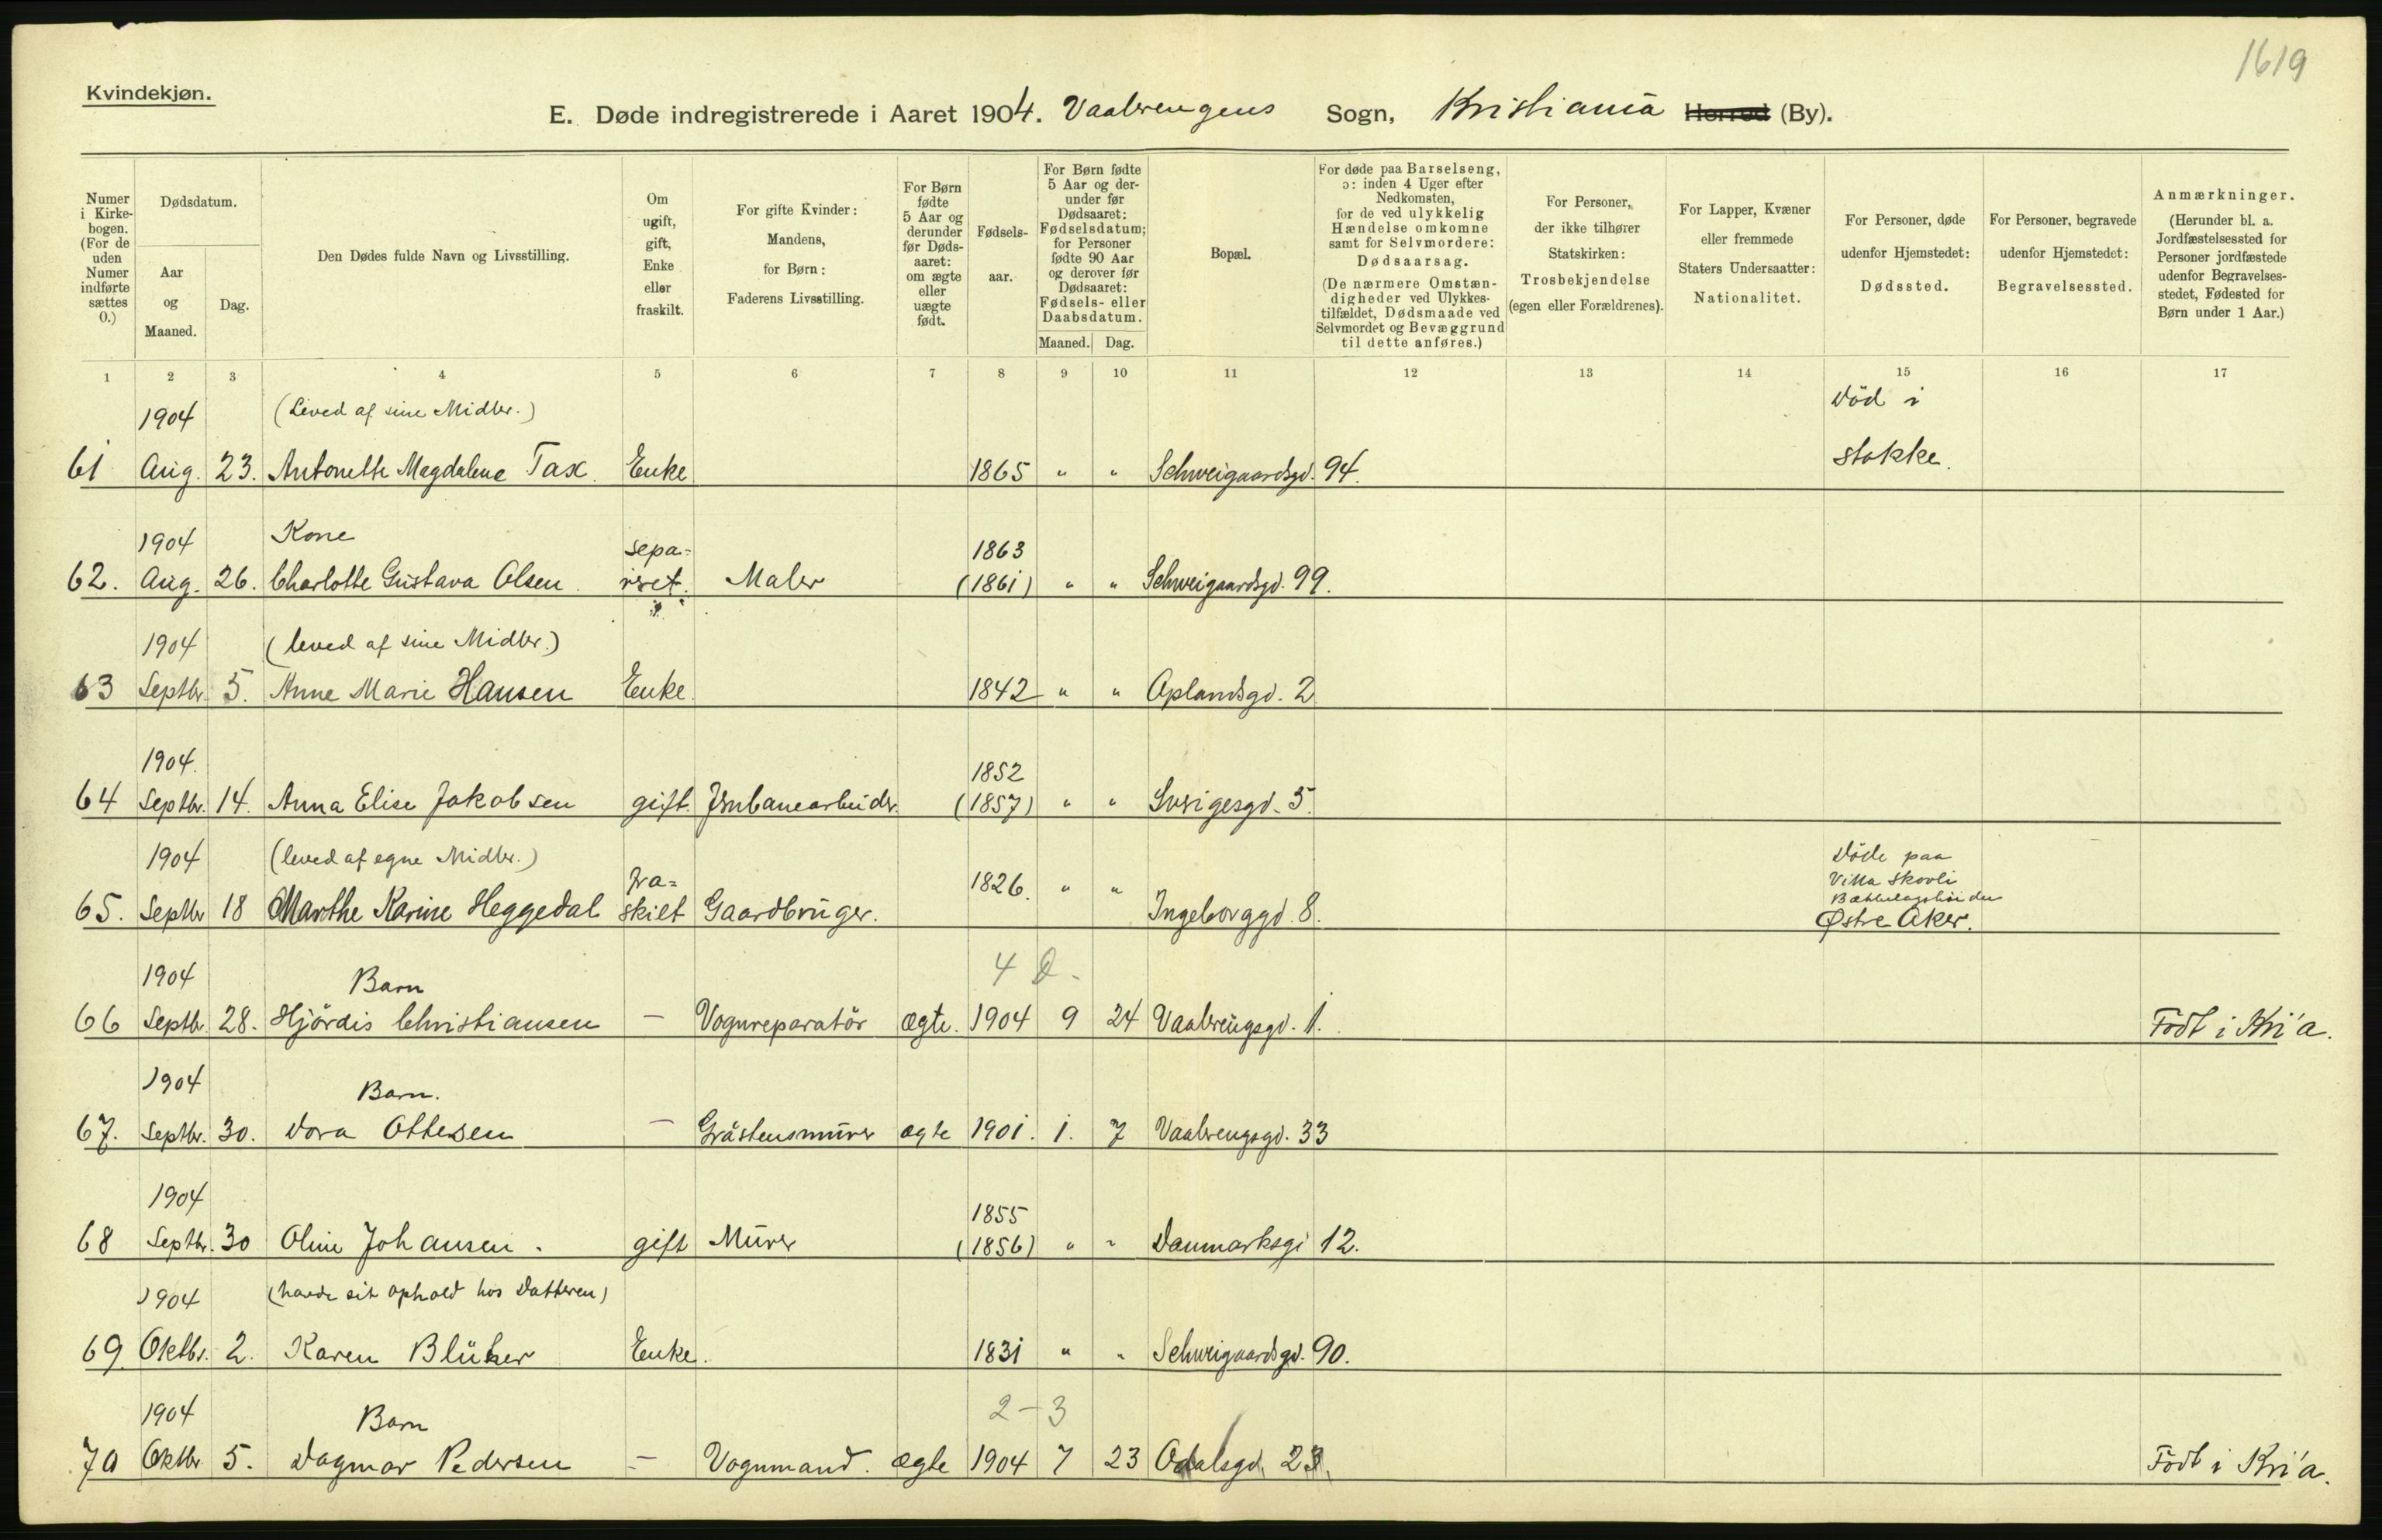 1619
Kvindekjøn.
E. Døde indregistrerede i Aaret 1904. Vaalerengens Sogn, Kristiania Herred (By).
Numer i Kirkebogen. (For de uden Numer indførte sættes 0.)
Dødsdatum.
Aar og Maaned.
Dag.
Den Dødes fulde Navn og Livsstilling.
Om ugift, gift, Enke eller fraskilt.
For gifte Kvinder: Mandens, for Børn: Faderens Livsstilling.
For Børn fødte 5 Aar og derunder før Dødsaaret: om ægte eller uægte født.
Fødselsaar.
For Børn fødte 5 Aar og derunder før Dødsaaret: Fødselsdatum; for Personer fødte 90 Aar og derover før Dødsaaret: Fødsels- eller Daabsdatum.
Maaned. Dag.
Bopæl.
For døde paa Barselseng, ɔ: inden 4 Uger efter Nedkomsten, for de ved ulykkelig Hændelse omkomne samt for Selvmordere: Dødsaarsag. (De nærmere Omstændigheder ved Ulykkestilfældet, Dødsmaade ved Selvmordet og Bevæggrund til dette anføres.)
For Personer, der ikke tilhører Statskirken: Trosbekjendelse (egen eller Forældrenes).
For Lapper, Kvæner eller fremmede Staters Undersaatter: Nationalitet.
For Personer, døde udenfor Hjemstedet: Dødssted.
For Personer, begravede udenfor Hjemstedet: Begravelsessted.
Anmærkninger. (Herunder bl. a. Jordfæstelsessted for Personer jordfæstede udenfor Begravelsesstedet, Fødested for Børn under 1 Aar.)
1 2 3 4 5 6 7 8 9 10 11 12 13 14 15 16 17
1904 (Leved af sine Midler.) Död i
61 Aug. 23. Antonette Magdalene Tax. Enke 1865 " " Schweigaardsgd. 94. Stokke.
1904 Kone sepa= 1863
62. Aug. 26. Charlotte Gustava Olsen. reret. Maler (1861) " " Schweigaardsgd. 99.
1904 (leved af sine Midler.)
63 Septbr. 5. Anne Marie Hansen Enke. 1842 " " Oplandsgd. 2
1904. 1852
64 Septbr. 14. Anna Elise Jakobsen gift. Jernbanearbeider. (1857) " " Sverigesgd. 5.
1904 (leved af egne Midler.) fra= 1826. " " Döde paa
Villa Skovli
65. Septbr 18 Marthe Karine Heggedal skilt Gaardbruger. Ingeborggd. 8. Østre Aker.
1904 Barn 4 D.
66 Septbr. 28. Hjördis Christiansen — Vognreparatör ægte. 1904 9 24 Vaalerengsgd. 1. Födt i Kri'a.
1904 Barn.
67. Septbr. 30. Dora Ottesen — Gråstensmurer ægte 1901. 1. 7 Vaalerengsgd. 33
1904 1855
68 Septbr. 30 Oline Johansen. gift Murer (1856) " " Danmarksgd 12.
1904 (havde sit ophold hos Datteren)
69. Oktbr. 2. Karen Blüher Enke. 1831 " " Schweigaardsgd. 90.
1904 Barn 2 - 3
70 Oktbr 5. Dagmar Pedersen — Vognmand. ægte 1904 7 23 Odalsgd. 23. Födt i Kri'a.